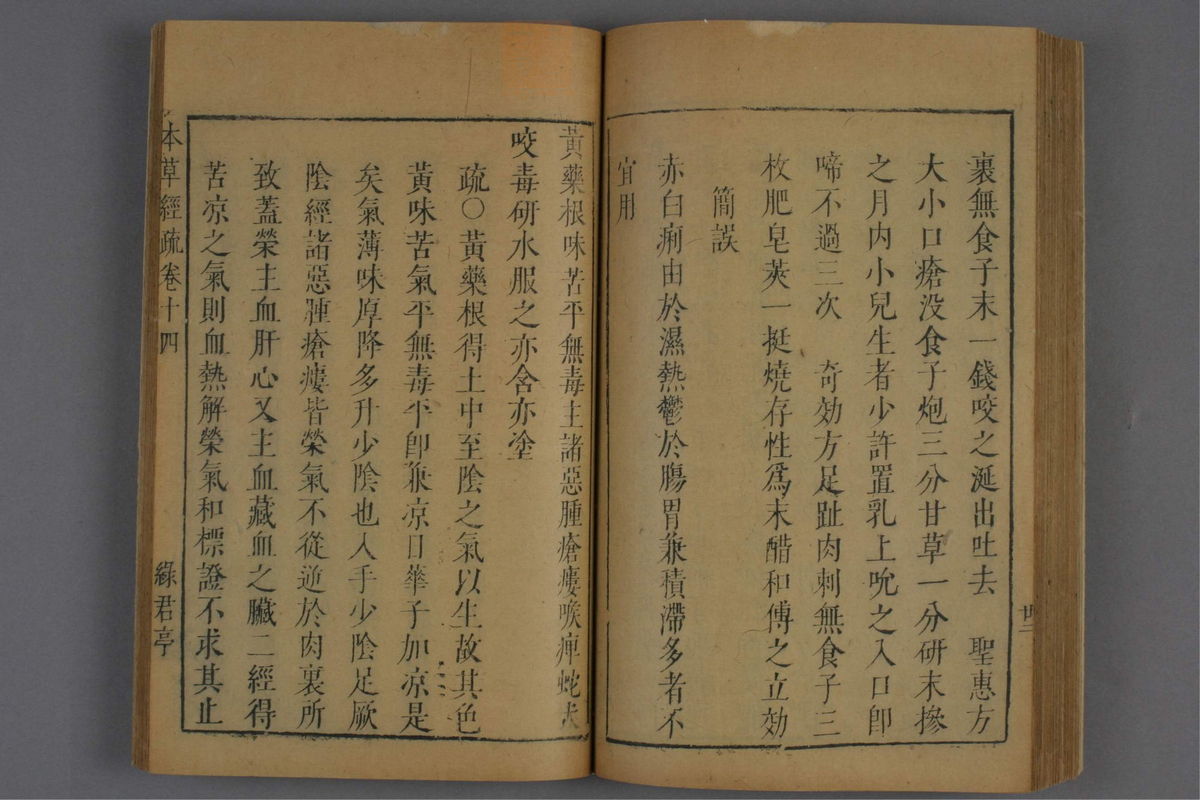 裹無食子末一錢咬之涎出吐去　聖惠方
大小口瘡没食子炮三分甘草一分研末摻
之月内小兒生者少許置乳上吮之入口卽
啼不過三次　奇効方足趾肉刺無食子三
枚肥皂莢一挺燒存性爲末醋和傅之立効
簡誤
赤白痢由於濕熱鬱於腸胃兼積滯多者不
宜用
黃藥根味苦平無毒主諸惡腫瘡瘻喉痺蛇犬
咬毒研水服之亦含亦塗
疏○黃藥根得土中至陰之氣以生故其色
黃味苦氣平無毒平卽兼凉日華子加凉是
矣氣薄味厚降多升少陰也入手少陰足厥
陰經諸惡腫瘡瘻皆榮氣不從逆於肉裏所
致蓋榮主血肝心又主血藏血之臟二經得
苦凉之氣則血熱解榮氣和標證不求其止
本草經疏卷十四
綠君亭